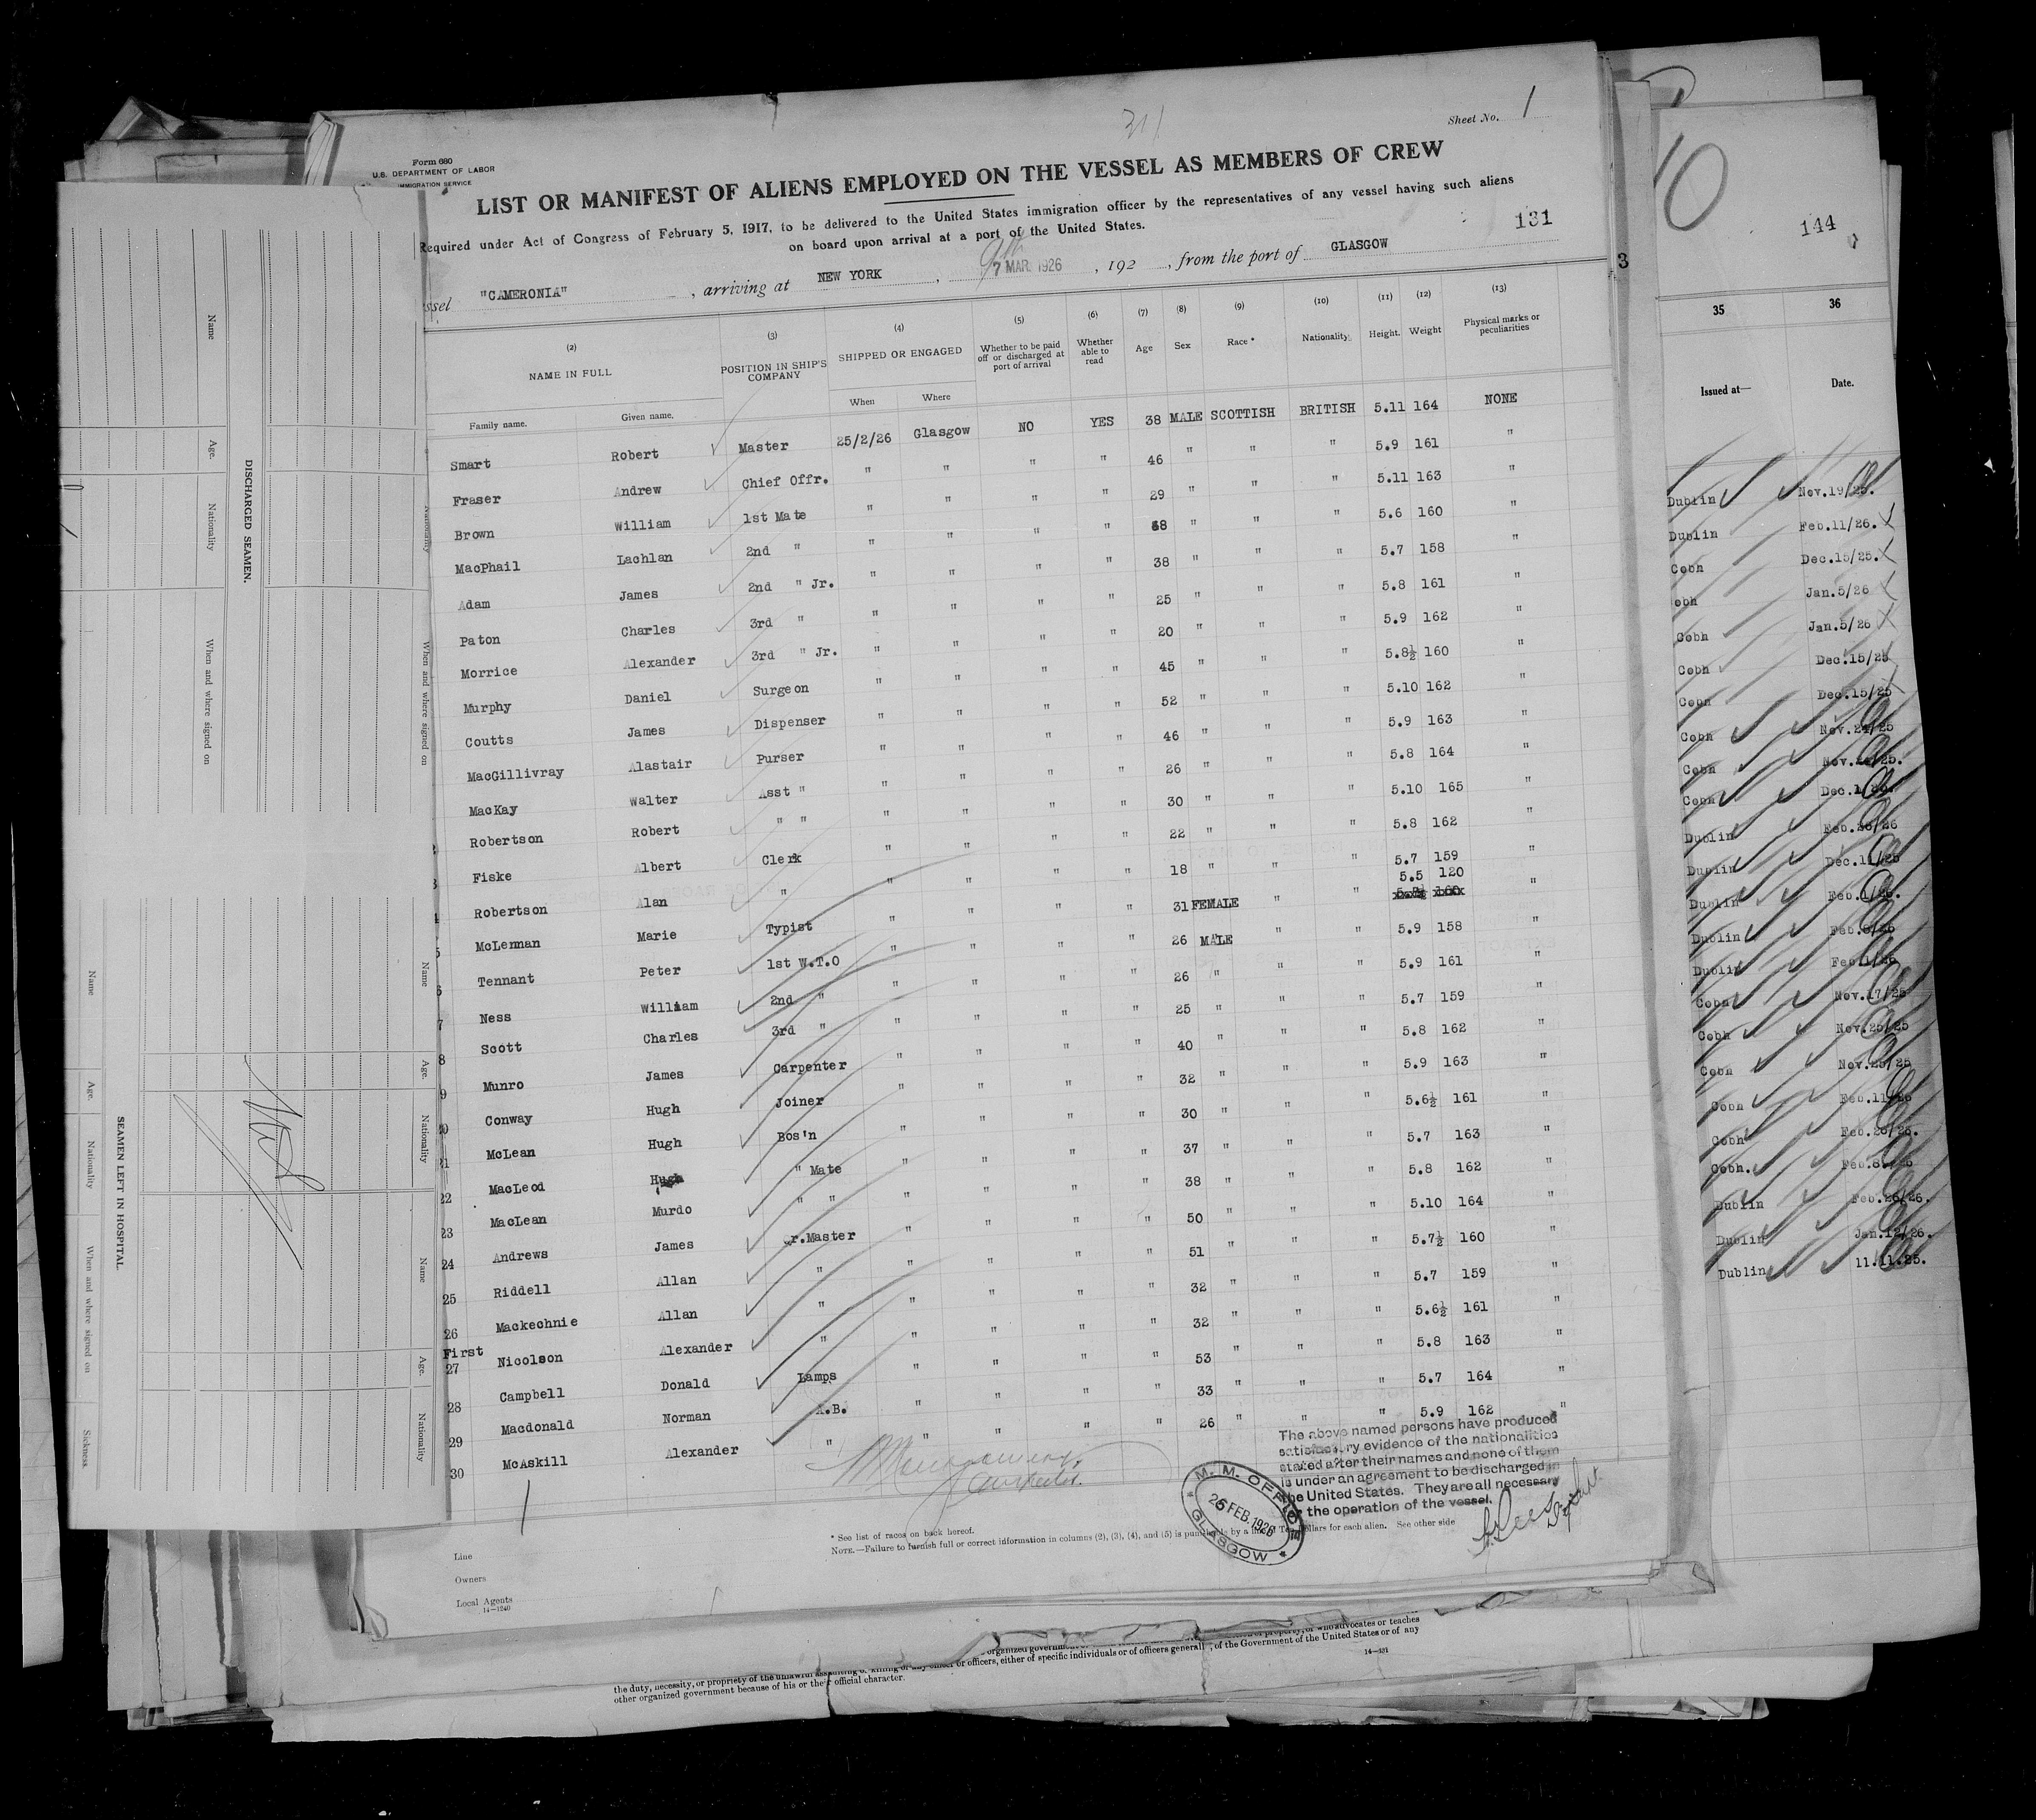 311
Sheet No. 1
Form 680
U.S. DEPARTMENT OF LABOR
IMMIGRATION SERVICE
LIST OR MANIFEST OF ALIENS EMPLOYED ON THE VESSEL AS MEMBERS OF CREW
Required under Act of Congress of February 5, 1917, to be delivered to the United States immigration officer by the representatives of any vessel having such aliens
on board upon arrival at a port of the United States.
131
ssel "CAMERONIA" , arriving at NEW YORK , 9th 7 MAR. 1926 , 192 , from the port of GLASGOW
(2) (3) (4) (5) (6) (7) (8) (9) (10) (11) (12) (13)
NAME IN FULL POSITION IN SHIP'S COMPANY SHIPPED OR ENGAGED Whether to be paid off or discharged at port of arrival Whether able to read Age Sex Race * Nationality Height. Weight Physical marks or peculiarities
Family name. Given name. When Where
Smart Robert Master 25/2/26 Glasgow NO YES 38 MALE SCOTTISH BRITISH 5.11 164 NONE
Fraser Andrew Chief Offr. " " " " 46 " " " 5.9 161 "
Brown William 1st Mate " " " " 29 " " " 5.11 163 "
MacPhail Lachlan 2nd " " " " " 38 " " " 5.6 160 "
Adam James 2nd " Jr. " " " " 38 " " " 5.7 158 "
Paton Charles 3rd " " " " " 25 " " " 5.8 161 "
Morrice Alexander 3rd " Jr. " " " " 20 " " " 5.9 162 "
Murphy Daniel Surgeon " " " " 45 " " " 5.8½ 160 "
Coutts James Dispenser " " " " 52 " " " 5.10 162 "
MacGillivray Alastair Purser " " " " 46 " " " 5.9 163 "
MacKay Walter Asst " " " " " 26 " " " 5.8 164 "
Robertson Robert " " " " " " 30 " " " 5.10 165 "
Fiske Albert Clerk " " " " 22 " " " 5.8 162 "
Robertson Alan " " " " " 18 " " " 5.7 159 "
McLennan Marie Typist " " " " 31 FEMALE " " 5.5 120 "
Tennant Peter 1st W.T.O " " " " 26 MALE " " 5.9 158 "
Ness William 2nd " " " " " 26 " " " 5.9 161 "
Scott Charles 3rd " " " " " 25 " " " 5.7 159 "
8 Munro James Carpenter " " " " 40 " " " 5.8 162 "
9 Conway Hugh Joiner " " " " 32 " " " 5.9 163 "
20 McLean Hugh Bos'n " " " " 30 " " " 5.6½ 161 "
21 MacLeod Hugh " Mate " " " " 37 " " " 5.7 163 "
22 MacLean Murdo " " " " " " 38 " " " 5.8 162 "
23 Andrews James Qr.Master " " " " 50 " " " 5.10 164 "
24 Riddell Allan " " " " " 51 " " " 5.7½ 160 "
25 Mackechnie Allan " " " " " 32 " " " 5.7 159 "
26 Nicolson Alexander " " " " " 32 " " " 5.6½ 161 "
First
27 Campbell Donald Lamps " " " " 53 " " " 5.8 163 "
28 Macdonald Norman A.B. " " " " 33 " " " 5.7 164 "
29 McAskill Alexander " " " " " 26 " " " 5.9 162 "
30
The above named persons have produced
satisfactory evidence of the nationalities
stated after their names and none of them
is under an agreement to be discharged in
the United States. They are all necessary
for the operation of the vessel.
M. M. OFFICE
26 FEB. 1926
GLASGOW
* See list of races on back hereof.
NOTE.—Failure to furnish full or correct information in columns (2), (3), (4), and (5) is punishable by a fine of Ten dollars for each alien. See other side
Line
Owners
Local Agents
14—1240
DISCHARGED SEAMEN.
Name Age. Nationality When and where signed on
Nationality When and where signed on
SEAMEN LEFT IN HOSPITAL.
Name Age. Nationality When and where signed on Sickness.
Name Age. Nationality
Name Age. Nationality
10
144
3
35 36
Issued at— Date.
Dublin Nov.19/25.
Dublin Feb.11/26.
Cobh Dec.15/25.
obh Jan.5/26
Cobh Jan.5/26
Cobh Dec.15/25
Cobh Dec.15/25
Cobh Nov.24/25
Cobh Nov. 25.
Cobh Dec.
Dublin Feb.26/26
Dublin Dec.11/25
Dublin Feb.1/26.
Dublin Feb.
Dublin Feb.
Cobh Nov.17/25
Cobh Nov.25/25
Cobh Nov.25/25
Cobh Feb.11/26
Cobh Feb.26/26.
Cobh. Feb.8/26
Dublin Feb.26/26.
Dublin Jan.12/26.
Dublin 11.11.25.
organized government
or officers, either of specific individuals or of officers generally, of the Government of the United States or of any
the duty, necessity, or propriety of the unlawful assaulting or killing of any officer
other organized government because of his or their official character.
14—131